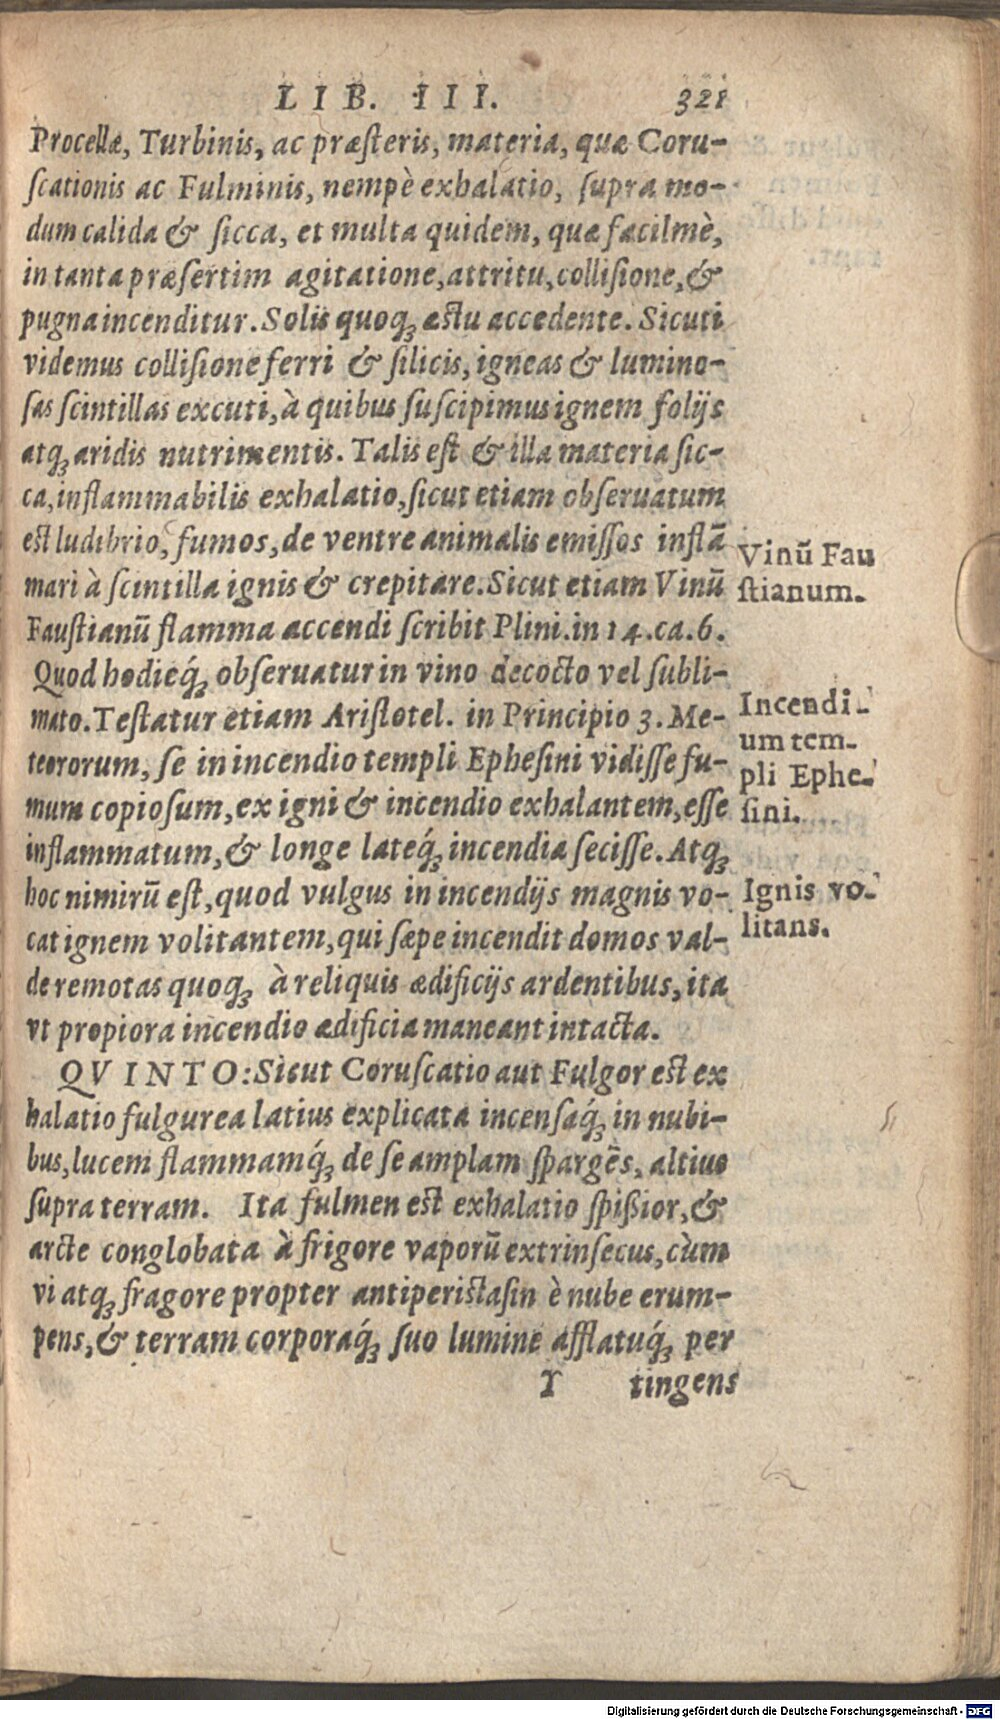 LIB. III. 321
Procellæ, Turbinis, ac præſteris, materia, quæ Coru-
ſcationis ac Fulminis, nempè exhalatio, ſupra mo-
dum calida & ſicca, et multa quidem, quæ facilmè,
in tanta præſertim agitatione, attritu, colliſione, &
pugna incenditur. Solis quoq; æſtu accedente. Sicuti
videmus colliſione ferri & ſilicis, igneas & lumino-
ſas ſcintillas excuti, à quibus ſuſcipimus ignem folijs
atq; aridis nutrimentis. Talis eſt & illa materia ſic-
ca, inflammabilis exhalatio, ſicut etiam obſeruatum
eſt ludibrio, fumos, de ventre animalis emiſſos inflā
mari à ſcintilla ignis & crepitare. Sicut etiam Vinū
Fauſtianū flamma accendi ſcribit Plini. in 14. ca. 6.
Quod hodieq́; obſeruatur in vino decocto vel ſubli-
mato. Teſtatur etiam Ariſtotel. in Principio 3. Me-
teororum, ſe in incendio templi Epheſini vidiſſe fu-
mum copioſum, ex igni & incendio exhalantem, eſſe
inflammatum, & longe lateq́; incendia feciſſe. Atq;
hoc nimirū eſt, quod vulgus in incendijs magnis vo-
cat ignem volitantem, qui ſæpe incendit domos val-
de remotas quoq; à reliquis ædificijs ardentibus, ita
vt propiora incendio ædificia maneant intacta.
QVINTO: Sicut Coruſcatio aut Fulgor eſt ex
halatio fulgurea latius explicata incenſaq́; in nubi-
bus, lucem flammamq́; de ſe amplam ſpargēs, altius
ſupra terram. Ita fulmen eſt exhalatio ſpißior, &
arcte conglobata à frigore vaporū extrinſecus, cùm
vi atq; fragore propter antiperiſtaſin è nube erum-
pens, & terram corporaq́; ſuo lumine afflatuq́; per
Y tingens
Vinū Fau
ſtianum.
Incendi-
um tem-
pli Ephe-
ſini.
Ignis vo-
litans.
Digitalisierung gefördert durch die Deutsche Forschungsgemeinschaft - DFG